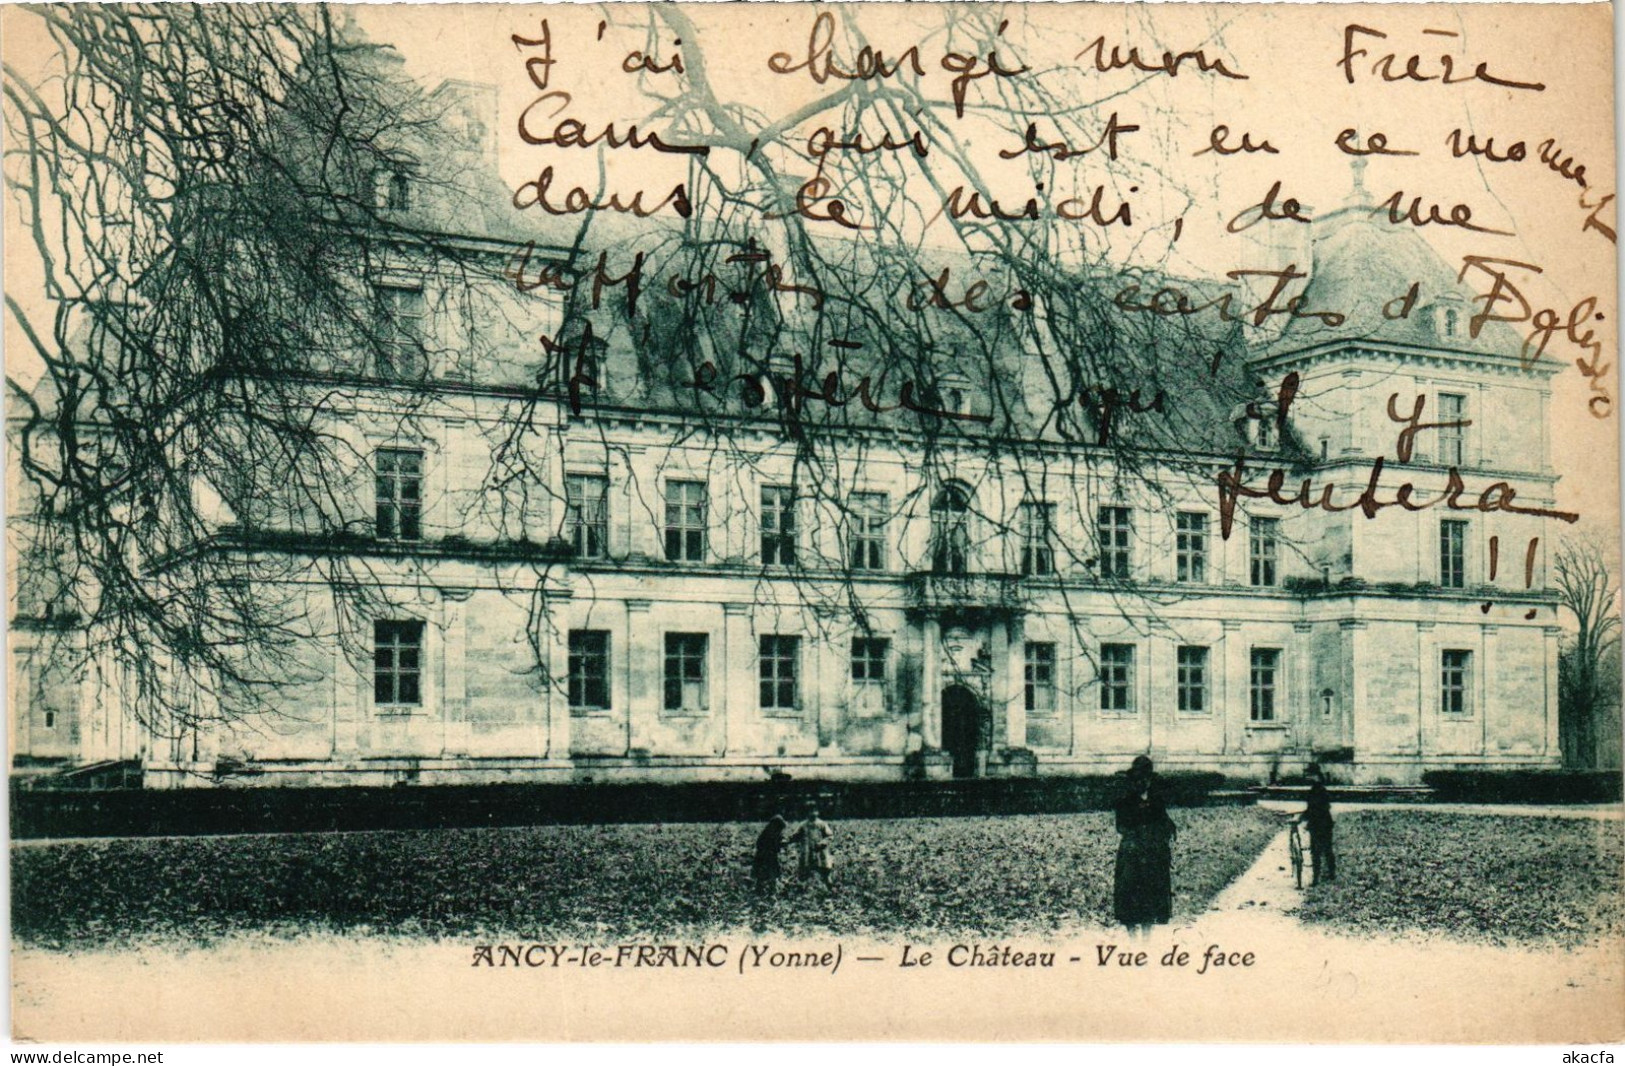 J'ai chargé mon Frère
Cam, qui est en ce moment
dans le midi, de me
rapporter des cartes d'Eglises
J'espère qu'il y
pensera
!!
ANCY-le-FRANC (Yonne) — Le Château - Vue de face
akacfa